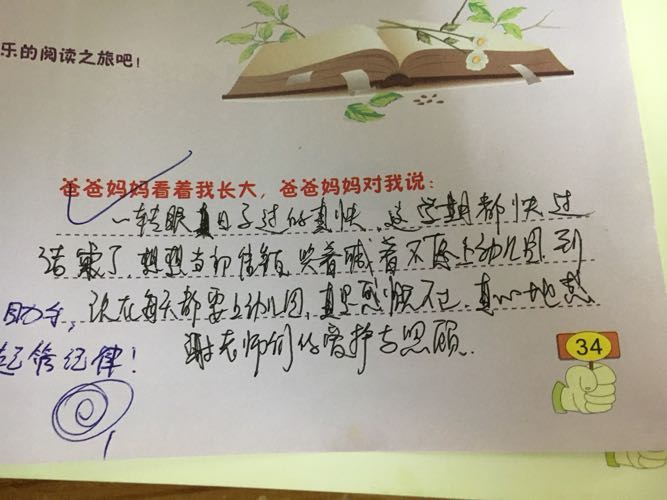 乐的阅读之旅吧!
爸爸妈妈看着我长大，爸爸妈妈对我说：
一转眼日子过的真快，这学期都快过
结束了，想想当初 哭着喊着不愿上幼儿园，到
现在每天都要上幼儿园，真是感慨不已，真心地感
谢老师们的爱护与照顾.
助手，
起管纪律!
34